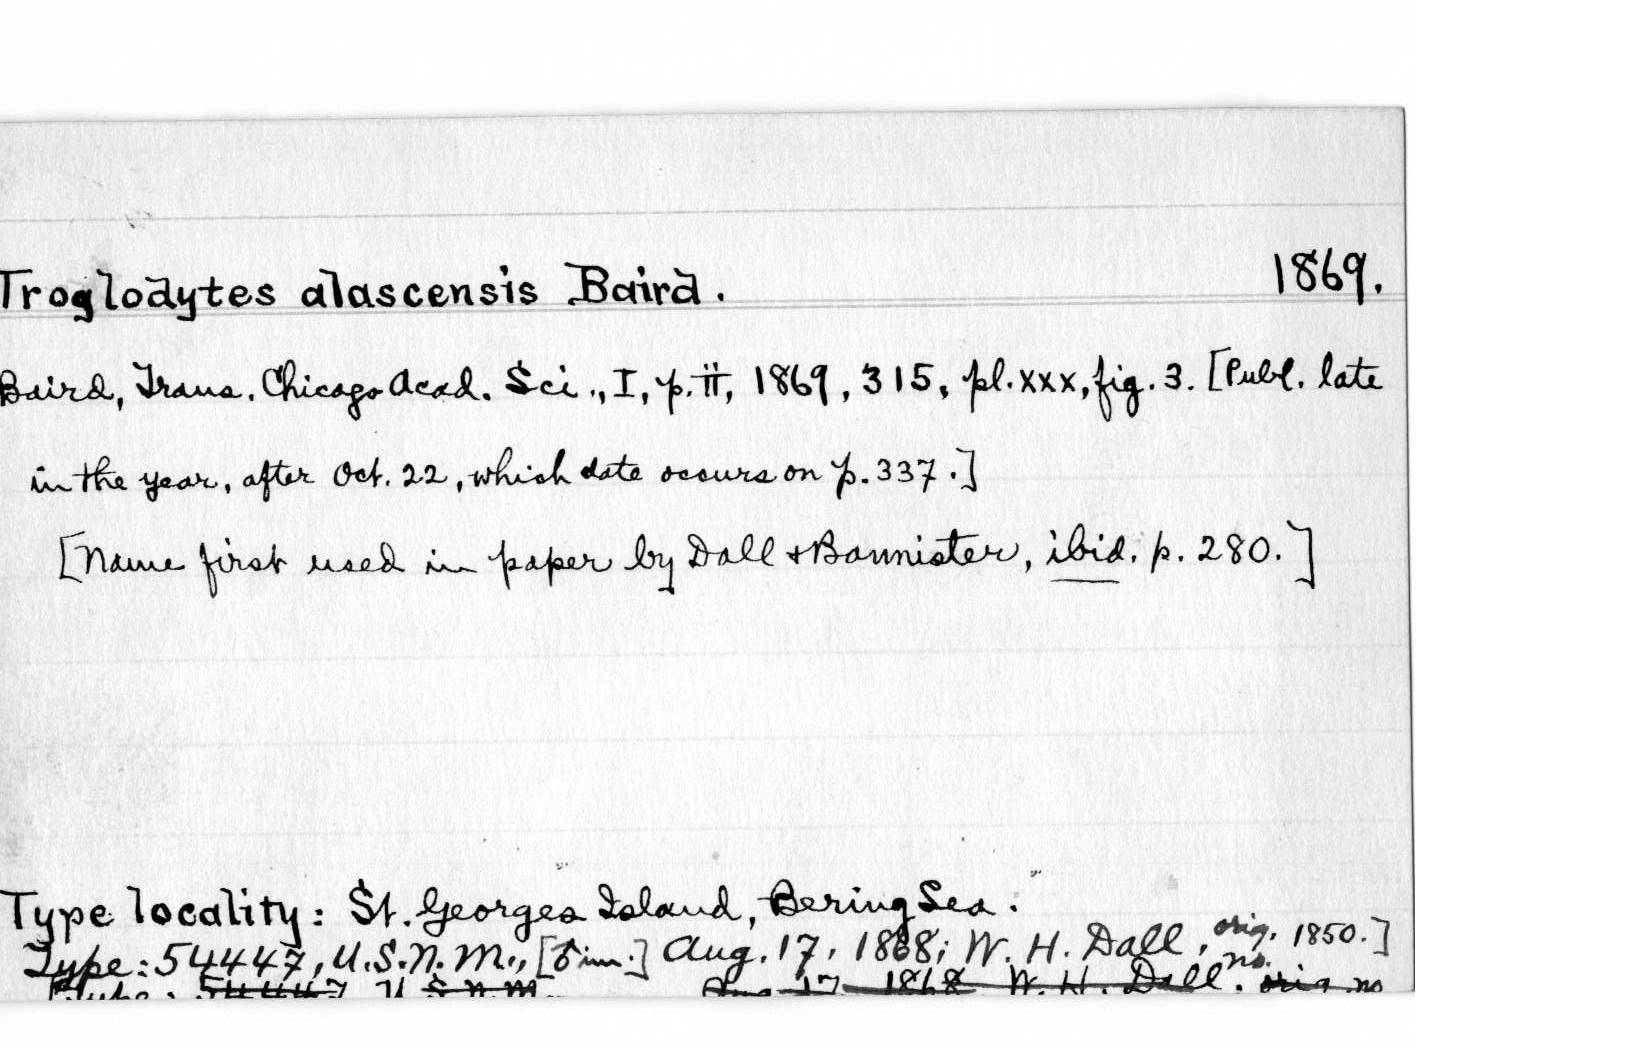 Troglodytes alascensis Baird. 1869.
Baird, Trans. Chicago Acad. Sci., I, p. ii, 1869, 315, pl. xxx, fig. 3. [Publ. late
in the year, after Oct. 22, which date occurs on p. 337.]
[Name first used in paper by Dall & Bannister, ibid. p. 280.]
Type locality: St. Georges Island, Bering Sea.
Type: 54447, U.S.N.M., [♂ im.] Aug. 17, 1868; W. H. Dall, orig. no. 1850.]
Type: 54447 U.S.N.M. Aug 17 1868 W. H. Dall. orig no